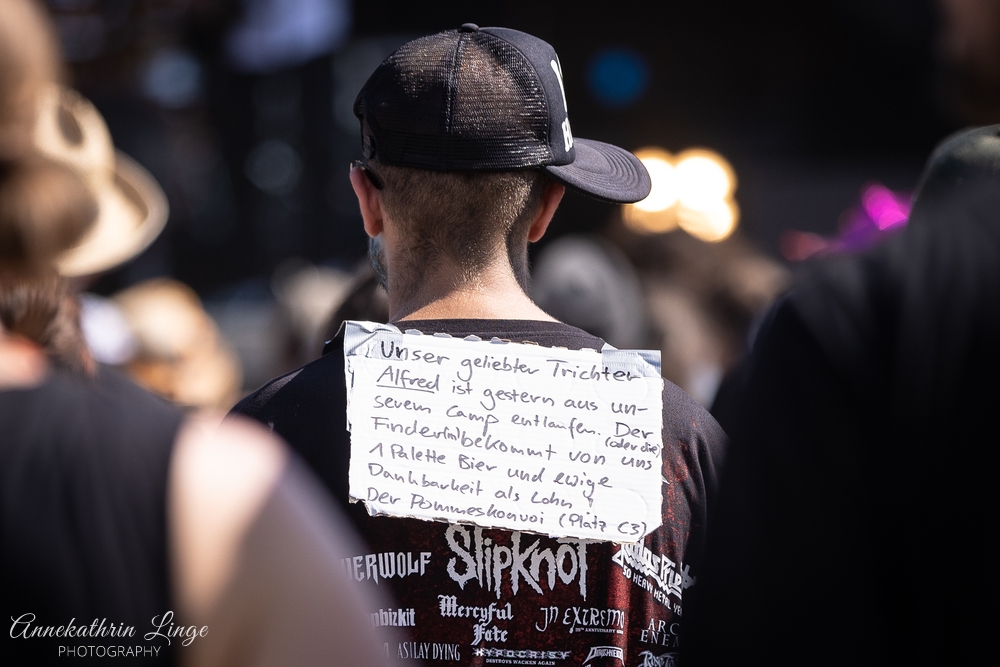 Unser geliebter Trichter
Alfred ist gestern aus un-
serem Camp entlaufen. Der
(oder die)
Finder(in) bekommt von uns
1 Palette Bier und ewige
Dankbarkeit als Lohn!
Der Pommeskonvoi (Platz C3)
ERWOLF
SLIPKNOT
Judas Priest
50 HEAVY METAL
bizkit
Mercyful
Fate
IN EXTREMO
ARC
ENE
AS I LAY DYING
HYPOCRISY
DESTROYS WACKEN AGAIN
Annekathrin Linge
PHOTOGRAPHY